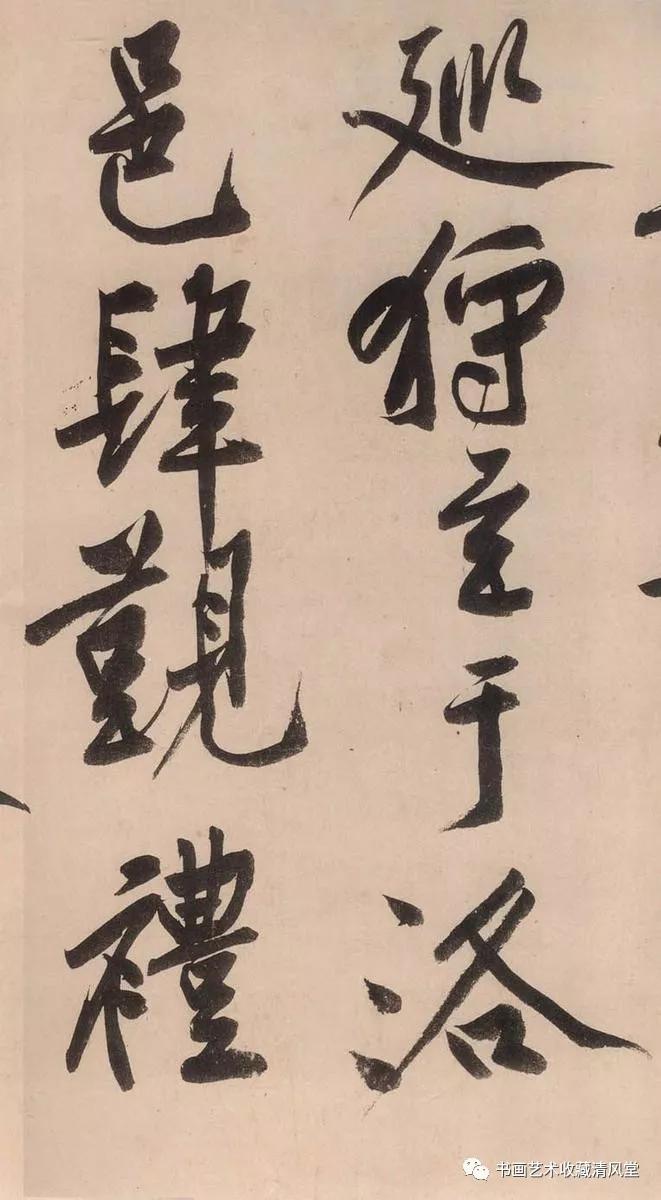 廵狩至于洛
邑肆觐禮
书画艺术收藏清风堂